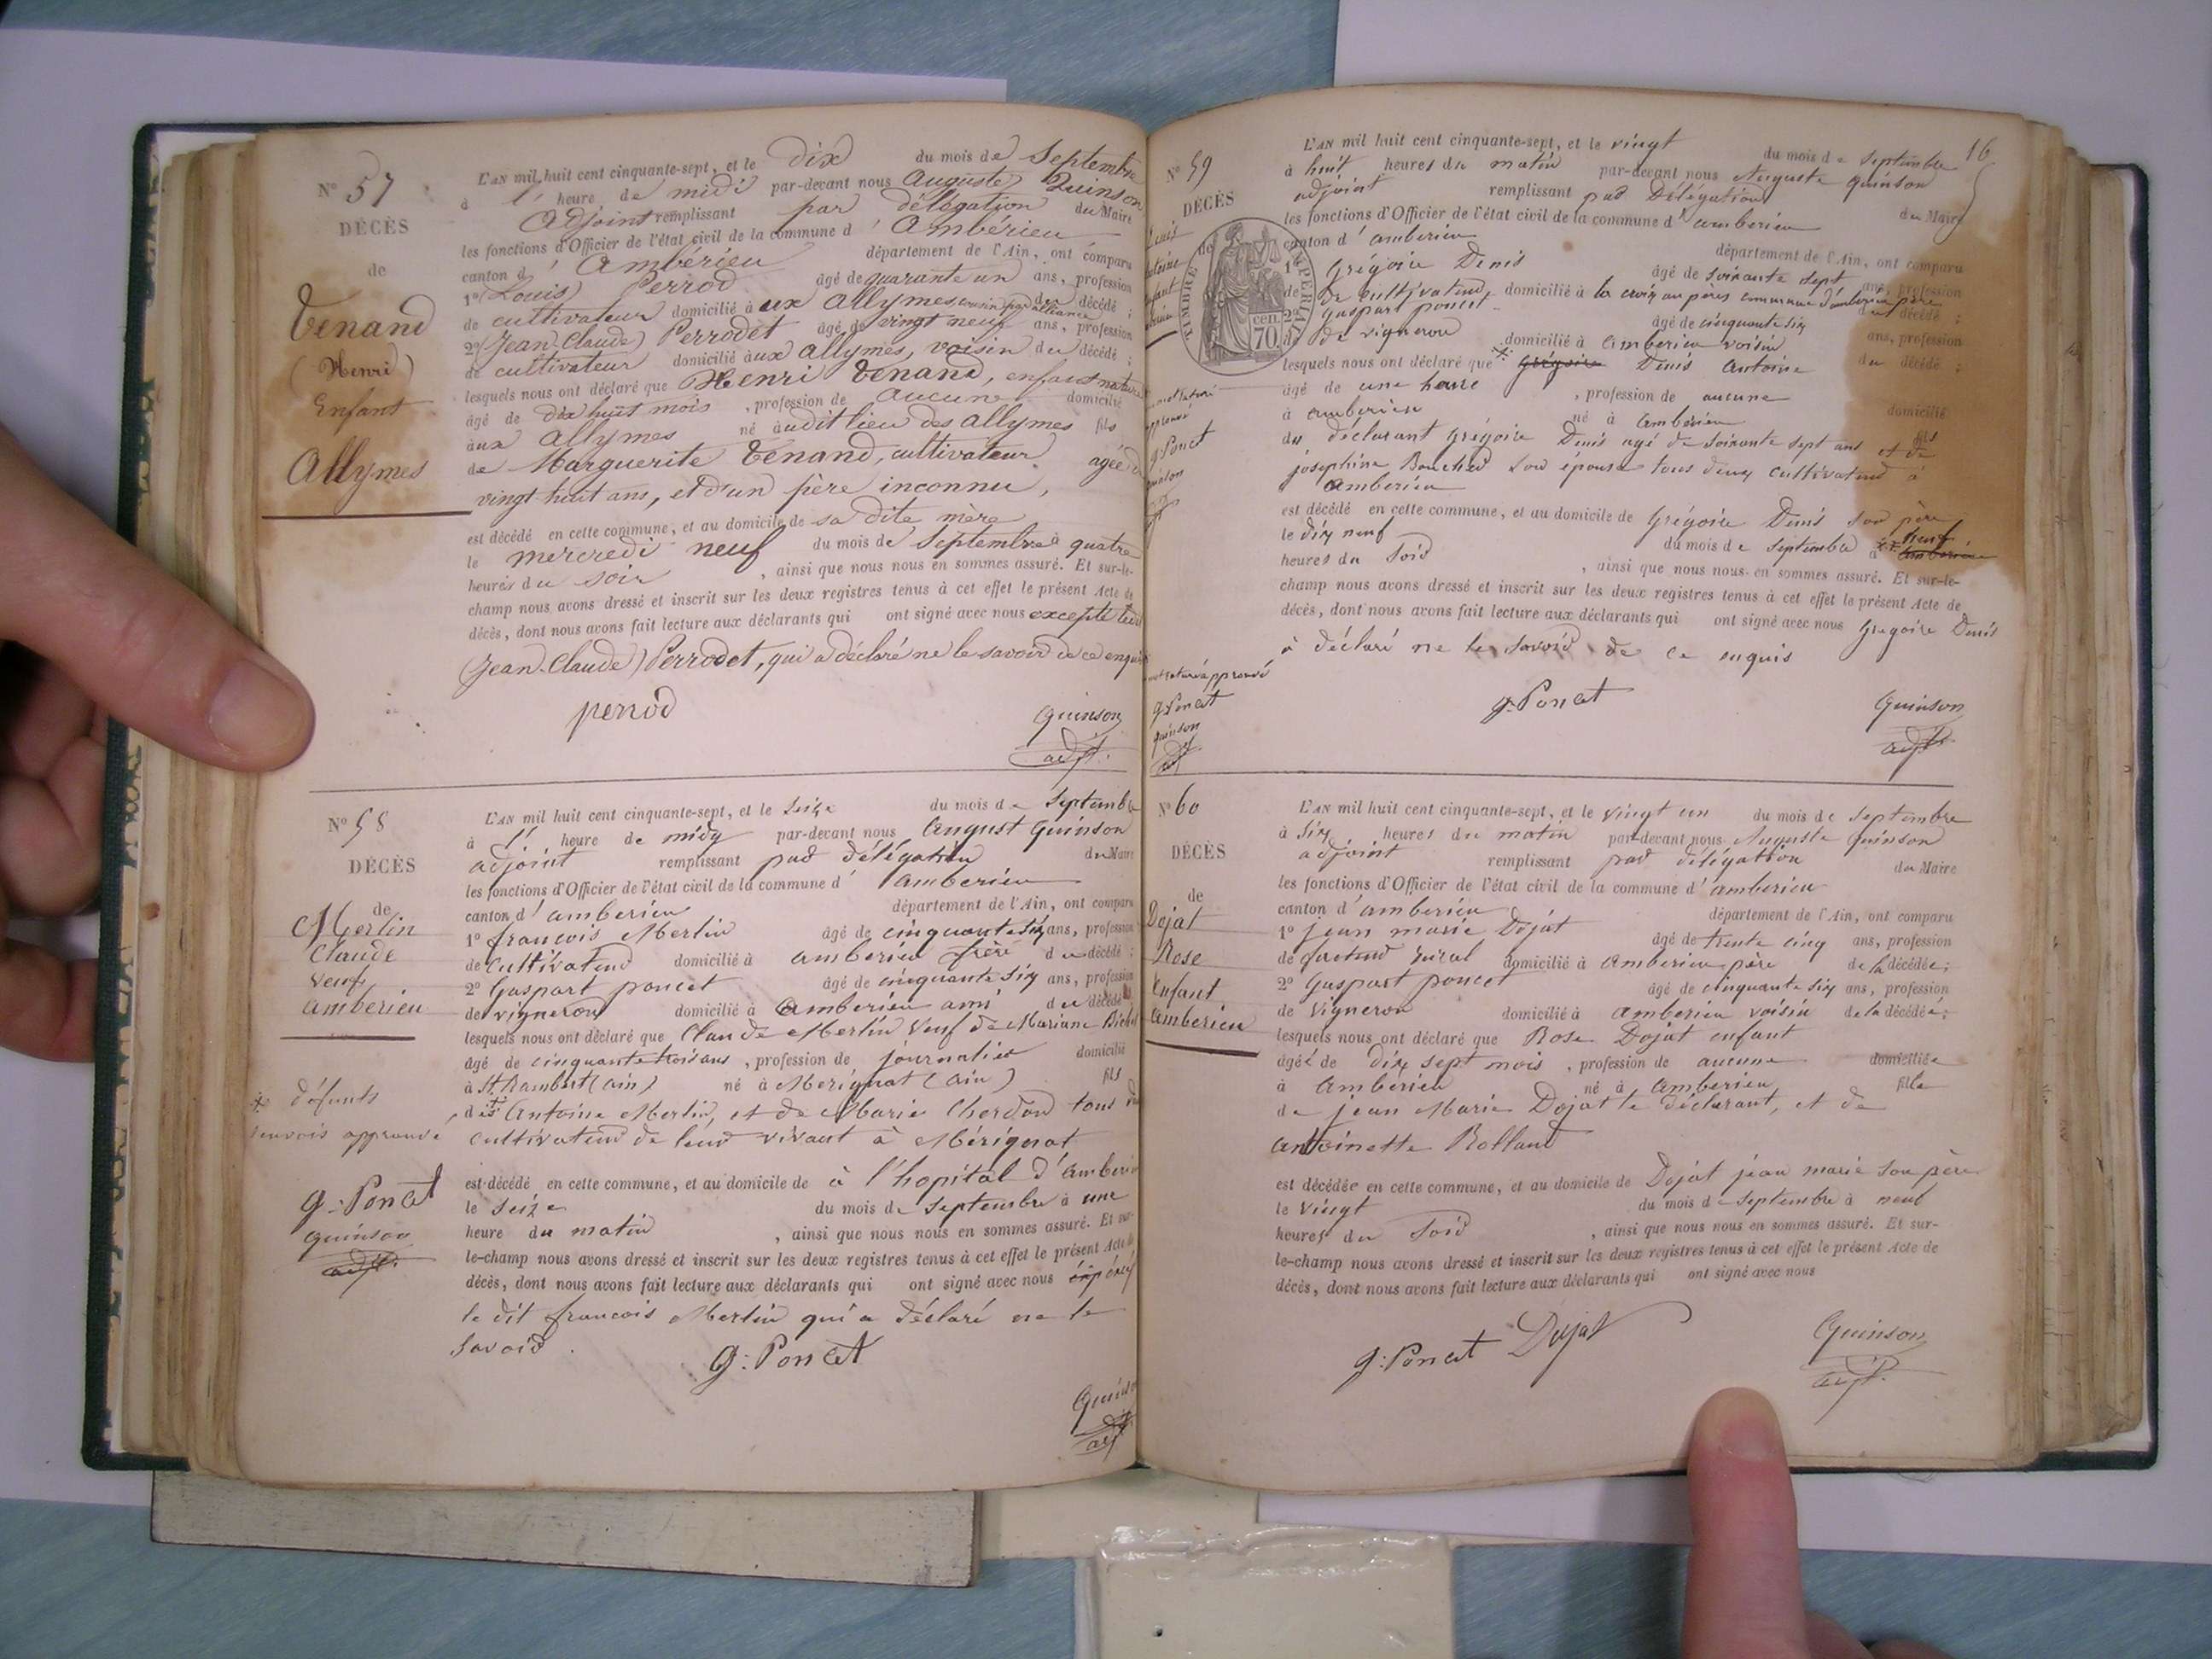 N° 57
DÉCÈS
de
Tenand
(Henri)
Enfant
Allymes
L'AN mil huit cent cinquante-sept, et le dix du mois de Septembre
à l' heure de midi par-devant nous Auguste Quinson
Adjoint remplissant par délégation du Maire
les fonctions d'Officier de l'état civil de la commune d' Ambérieu
canton d' Ambérieu département de l'Ain, ont comparu
1° (Louis) Perrod âgé de quarante un ans, profession
de cultivateur domicilié à ux Allymes cousin par alliance du décédé ;
2° (Jean-Claude) Perrodet âgé de vingt neuf ans, profession
de cultivateur domicilié à ux Allymes, voisin du décédé ;
lesquels nous ont déclaré que Henri Tenand, enfant naturel
âgé de dix huit mois , profession de aucune domicilié
aux Allymes né audit lieu des Allymes fils
de Marguerite Tenand, cultivateur agée de
vingt huit ans, et d'un père inconnu,
est décédé en cette commune, et au domicile de sa dite mère
le mercredi neuf du mois de Septembre à quatre
heures du soir , ainsi que nous nous en sommes assuré. Et sur-le-
champ nous avons dressé et inscrit sur les deux registres tenus à cet effet le présent Acte de
décès, dont nous avons fait lecture aux déclarants qui ont signé avec nous excepté
(Jean-Claude) Perrodet, qui a déclaré ne le savoir de ce enquis
perrod
Quinson
adjt.
N° 58
DÉCÈS
de
Merlin
Claude
Veuf
amberieu
* défunts
renvois approuvé
g. Poncet
quinson
adjt.
L'AN mil huit cent cinquante-sept, et le Seize du mois de Septembre
à l' heure de midy par-devant nous August Quinson
adjoint remplissant par délégation du Maire
les fonctions d'Officier de l'état civil de la commune d' amberieu
canton d' amberieu département de l'Ain, ont comparu
1° francois Merlin âgé de cinquante six ans, profession
de Cultivateur domicilié à amberieu frère du décédé ;
2° Gaspart poncet âgé de cinquante six ans, profession
de vigneron domicilié à Amberieu ami du décédé
lesquels nous ont déclaré que Claude Merlin Veuf de Mariane
âgé de cinquante trois ans , profession de journalier domicilié
à St Rambert (ain) né à Merignat (ain) fils
des * Antoine Merlin, et de Marie Cherdon tous
cultivateur de leur vivant à Mérignat
est décédé en cette commune, et au domicile de à l'hopital d'amberieu
le Seize du mois de Septembre à une
heure du matin , ainsi que nous nous en sommes assuré. Et sur-
le-champ nous avons dressé et inscrit sur les deux registres tenus à cet effet le présent Acte de
décès, dont nous avons fait lecture aux déclarants qui ont signé avec nous
le dit francois Merlin qui a déclaré ne le
Savoir.
g: Poncet
Quinson
adjt
16
N° 59
DÉCÈS
de
Denis
antoine
enfant
TIMBRE IMPERIAL
70 cen.
approuvé
g. Poncet
quinson
adjt
mot raturé approuvé
g. Poncet
quinson
adjt
L'AN mil huit cent cinquante-sept, et le vingt du mois de Septembre
à huit heures du matin par-devant nous Auguste Quinson
adjoint remplissant par Délégation du Maire
les fonctions d'Officier de l'état civil de la commune d' amberieu
canton d' amberieu département de l'Ain, ont comparu
1° Grégoire Denis âgé de Soixante sept ans, profession
de cultivateur domicilié à la croix au pères commune d'amberieu père du décédé ;
2° Gaspart poncet âgé de cinquante six ans, profession
de vigneron domicilié à Amberieu voisin du décédé ;
lesquels nous ont déclaré que * Grégoire Denis Antoine
âgé de une heure , profession de aucune domicilié
à amberieu né à Ambérieu fils
du déclarant Grégoire Denis agé de soixante sept ans et de
joséphine Bouchard Son épouse tous deux cultivateur à
Amberieu
est décédé en cette commune, et au domicile de Grégoire Denis Son père
le dix neuf du mois de Septembre à ** neuf amberieu
heures du Soir , ainsi que nous nous en sommes assuré. Et sur-le-
champ nous avons dressé et inscrit sur les deux registres tenus à cet effet le présent Acte de
décès, dont nous avons fait lecture aux déclarants qui ont signé avec nous Gregoire Denis
à déclaré ne le Savoir de ce enquis
g. Poncet
Quinson
adjt.
N° 60
DÉCÈS
de
Dojat
Rose
Enfant
Amberieu
L'AN mil huit cent cinquante-sept, et le vingt un du mois de Septembre
à Six heures du matin par-devant nous Auguste Quinson
adjoint remplissant par délégation du Maire
les fonctions d'Officier de l'état civil de la commune d' amberieu
canton d'amberieu département de l'Ain, ont comparu
1° jean marie Dojat âgé de trente cinq ans, profession
de facteur rural domicilié à Amberieu père de la décédée;
2° Gaspart poncet âgé de cinquante six ans, profession
de Vigneron domicilié à Amberieu voisin de la décédée;
lesquels nous ont déclaré que Rose Dojat enfant
âgée de Dix sept mois , profession de aucune domiciliée
à Ambérieu né à Amberieu fille
de jean Marie Dojat le déclarant, et de
Antoinette Rolland
est décédée en cette commune, et au domicile de Dojat jean marie Son père
le vingt du mois de Septembre à neuf
heures du Soir , ainsi que nous nous en sommes assuré. Et sur-
le-champ nous avons dressé et inscrit sur les deux registres tenus à cet effet le présent Acte de
décès, dont nous avons fait lecture aux déclarants qui ont signé avec nous
g: Poncet Dojat
Quinson
adjt.